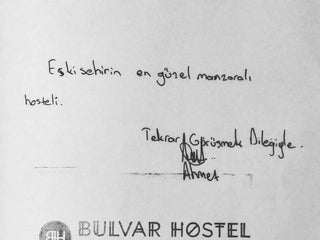 Eskişehirin en güzel manzaralı
hosteli.
Tekrar Görüşmek Dileğiyle.
Ahmet
BH BULVAR HOSTEL